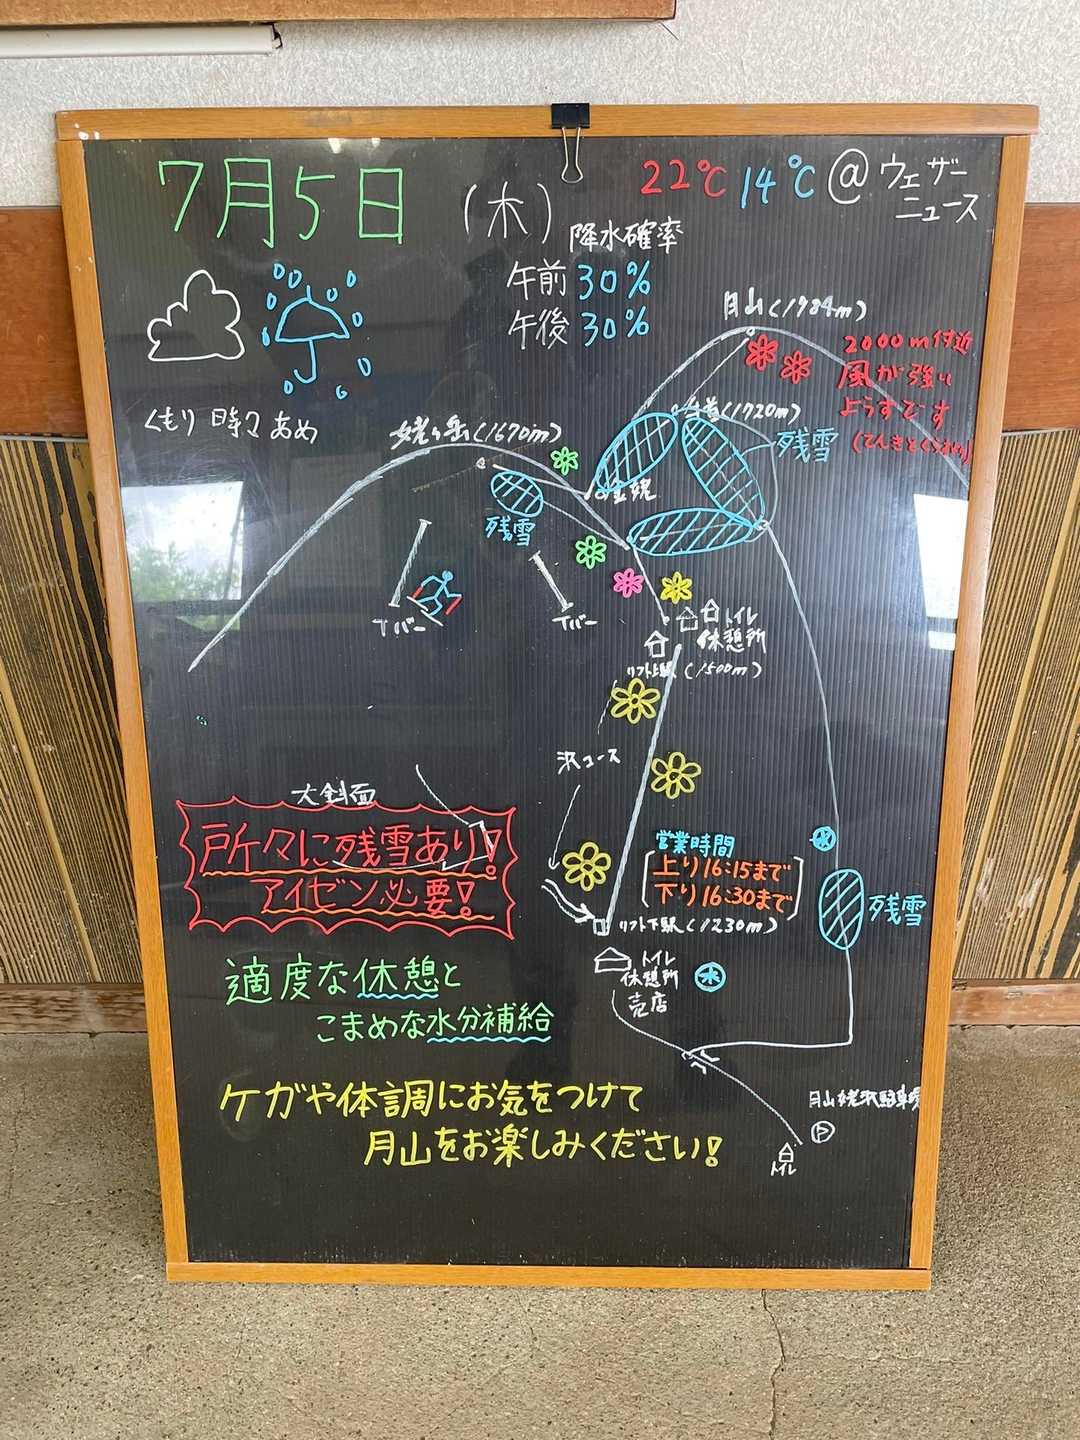 7月5日
(木)
22℃ 14℃ @ウェザー
ニュース
降水確率
午前 30%
午後 30%
くもり 時々 あめ
月山(1984m)
2000m付近
風が強い
ようすです
(てんきとくらす)
姥ヶ岳(1670m)
牛首(1720m)
残雪
金姥
残雪
Tバー
Tバー
トイレ
休憩所
リフト上駅(1500m)
沢コース
大斜面
戸斤々に残雪あり!
アイゼン必要!
営業時間
上り16:15まで
下り16:30まで
リフト下駅(1230m)
水
残雪
トイレ
休憩所
売店
水
適度な休憩と
こまめな水分補給
ケガや体調にお気をつけて
月山をお楽しみください!
月山姥沢駐車場
P
トイレ